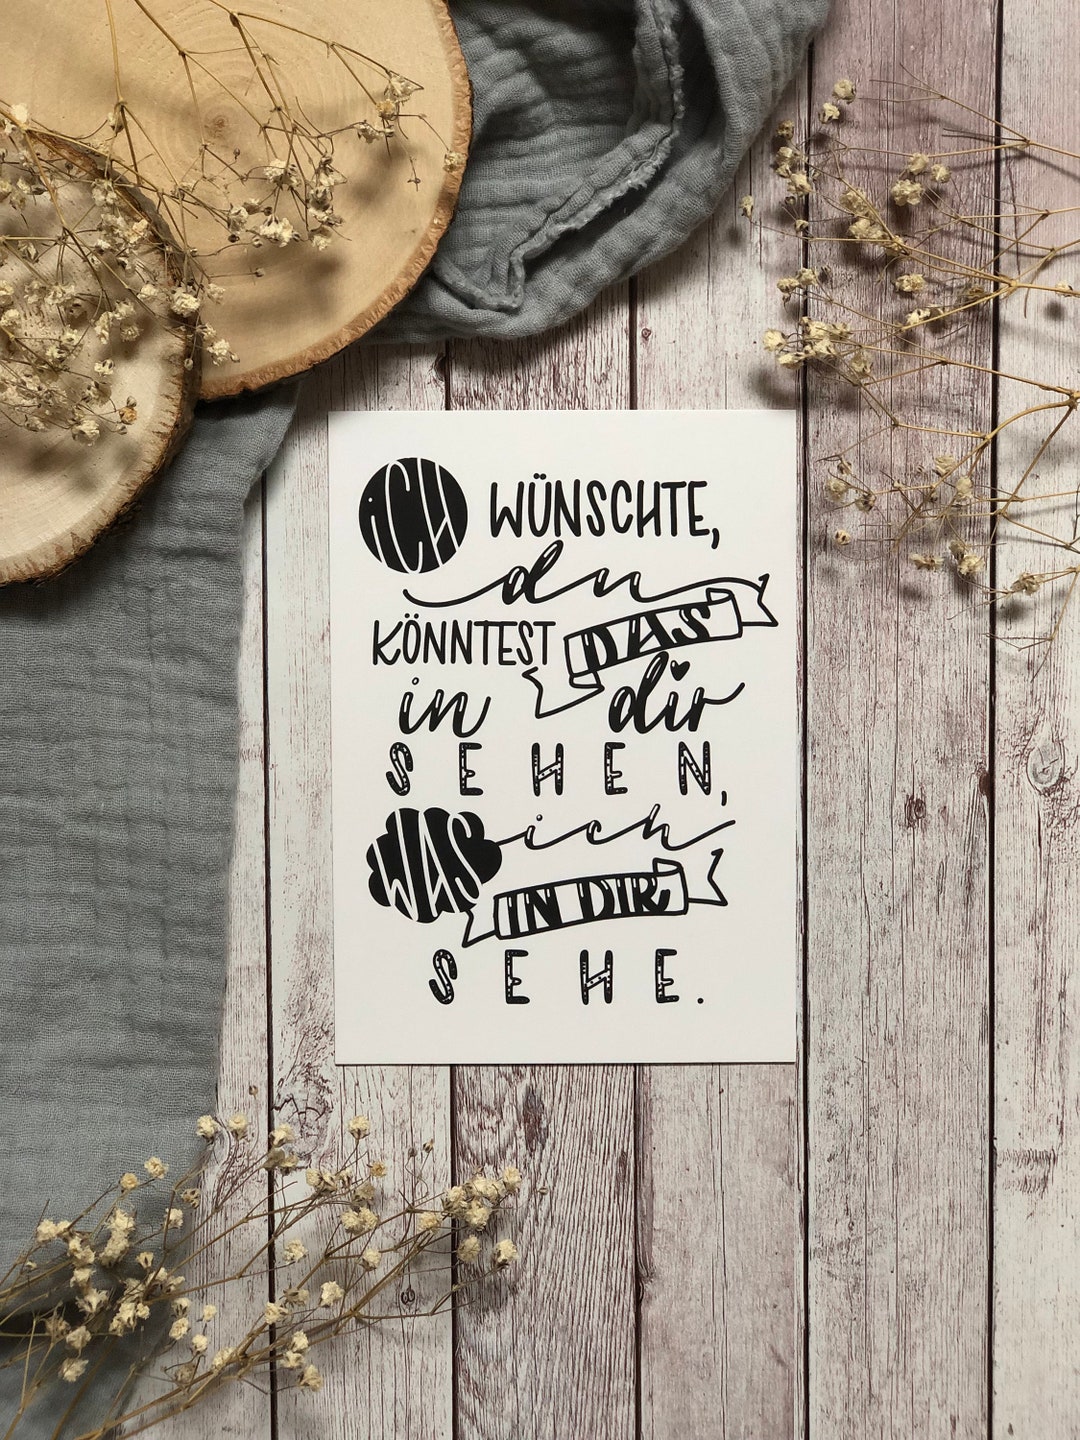 iCH WÜNSCHTE,
du
KÖNNTEST DAS
in dir
SEHEN,
WAS ich
IN DIR
SEHE.